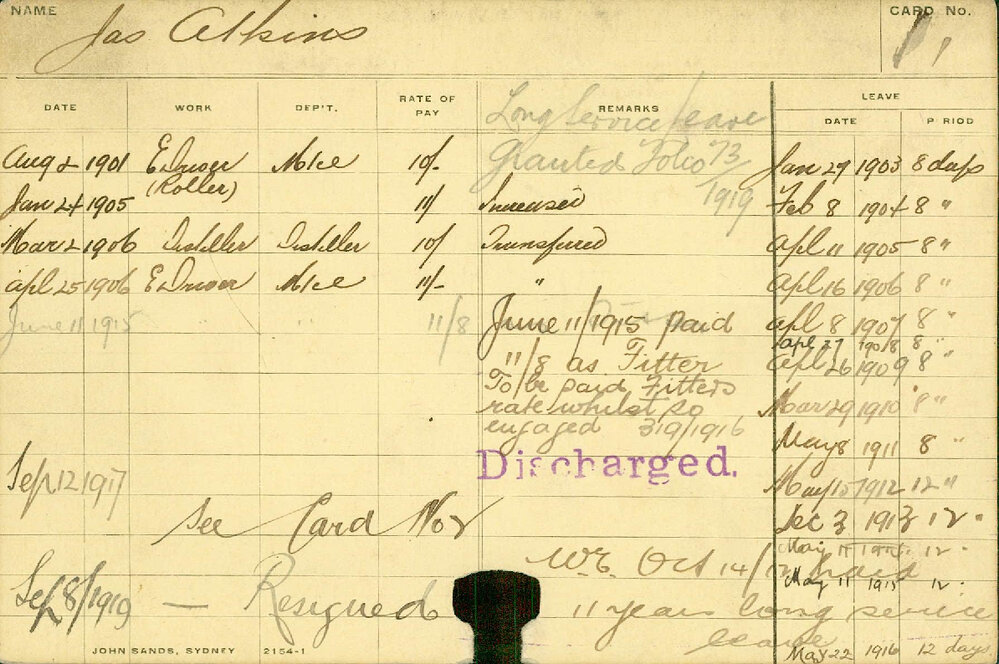 NAME Jas Atkins CARD No. 1
DATE WORK DEP'T. RATE OF PAY REMARKS LEAVE
DATE PERIOD
Long Service leave
Granted Folio 73
1919
Aug 2 1901 E Driver M Ice 10/- Jan 29 1903 8 days
(Roller)
Jan 24 1905 11/ Increased Feb 8 1904 8 "
Mar 2 1906 Distiller Distiller 10/ Transferred Apl 11 1905 8 "
Apl 25 1906 E Driver M Ice 11/- " Apl 16 1906 8 "
June 11 1915 11/8 June 11/1915 paid Apl 8 1907 8 "
Apl 27 1908 8 "
11/8 as Fitter Apl 26 1909 8 "
To be paid Fitters
rate whilst so Mar 29 1910 8 "
engaged 319/1916
May 8 1911 8 "
Discharged.
Sep 12 1917 May 15 1912 12 "
See Card No 2 Dec 3 1913 12 "
May 11 12 "
W.E. Oct 14/17 paid
May 11 1915 12 "
Sep 8/1919 — Resigned 11 years long service
leave
May 22 1916 12 days
JOHN SANDS, SYDNEY 2154-1